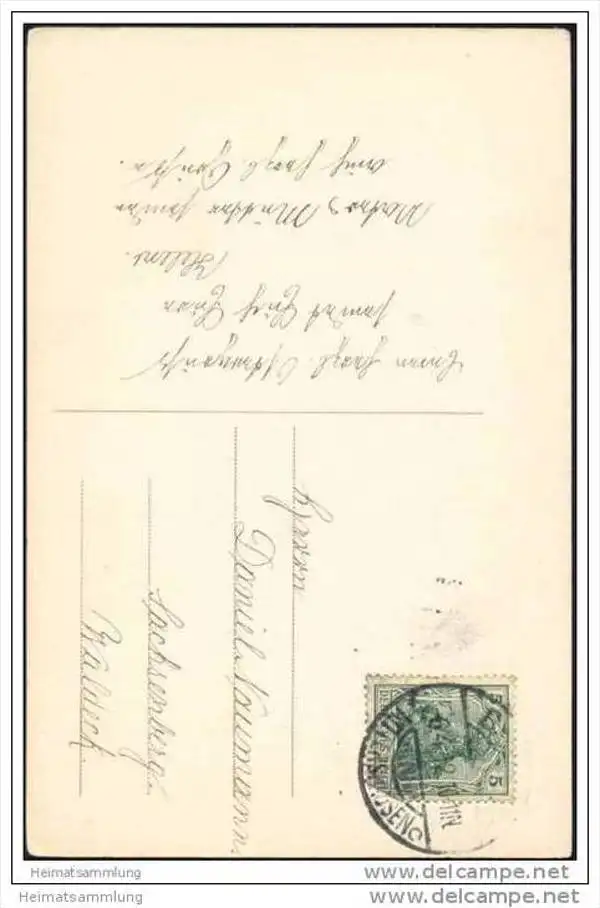 Einen herzl. Ostergruß
sendet Euch Eure
Helene.
Vater & Mutter senden
auch herzl. Grüße.
Herrn
Daniel Naumann
Sachsenberg.
Waldeck.
5
Heimatsammlung
delcampe.net
Heimatsammlung
delcampe.net